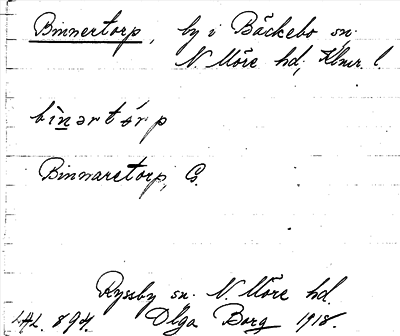 Binnertorp, by i Bäckebo sn.
N. Möre hd, Klmr. l.
bìnərtórp
Binnaretorp, G.
Ryssby sn. N. Möre hd.
LAL. 894. Olga Borg 1918.